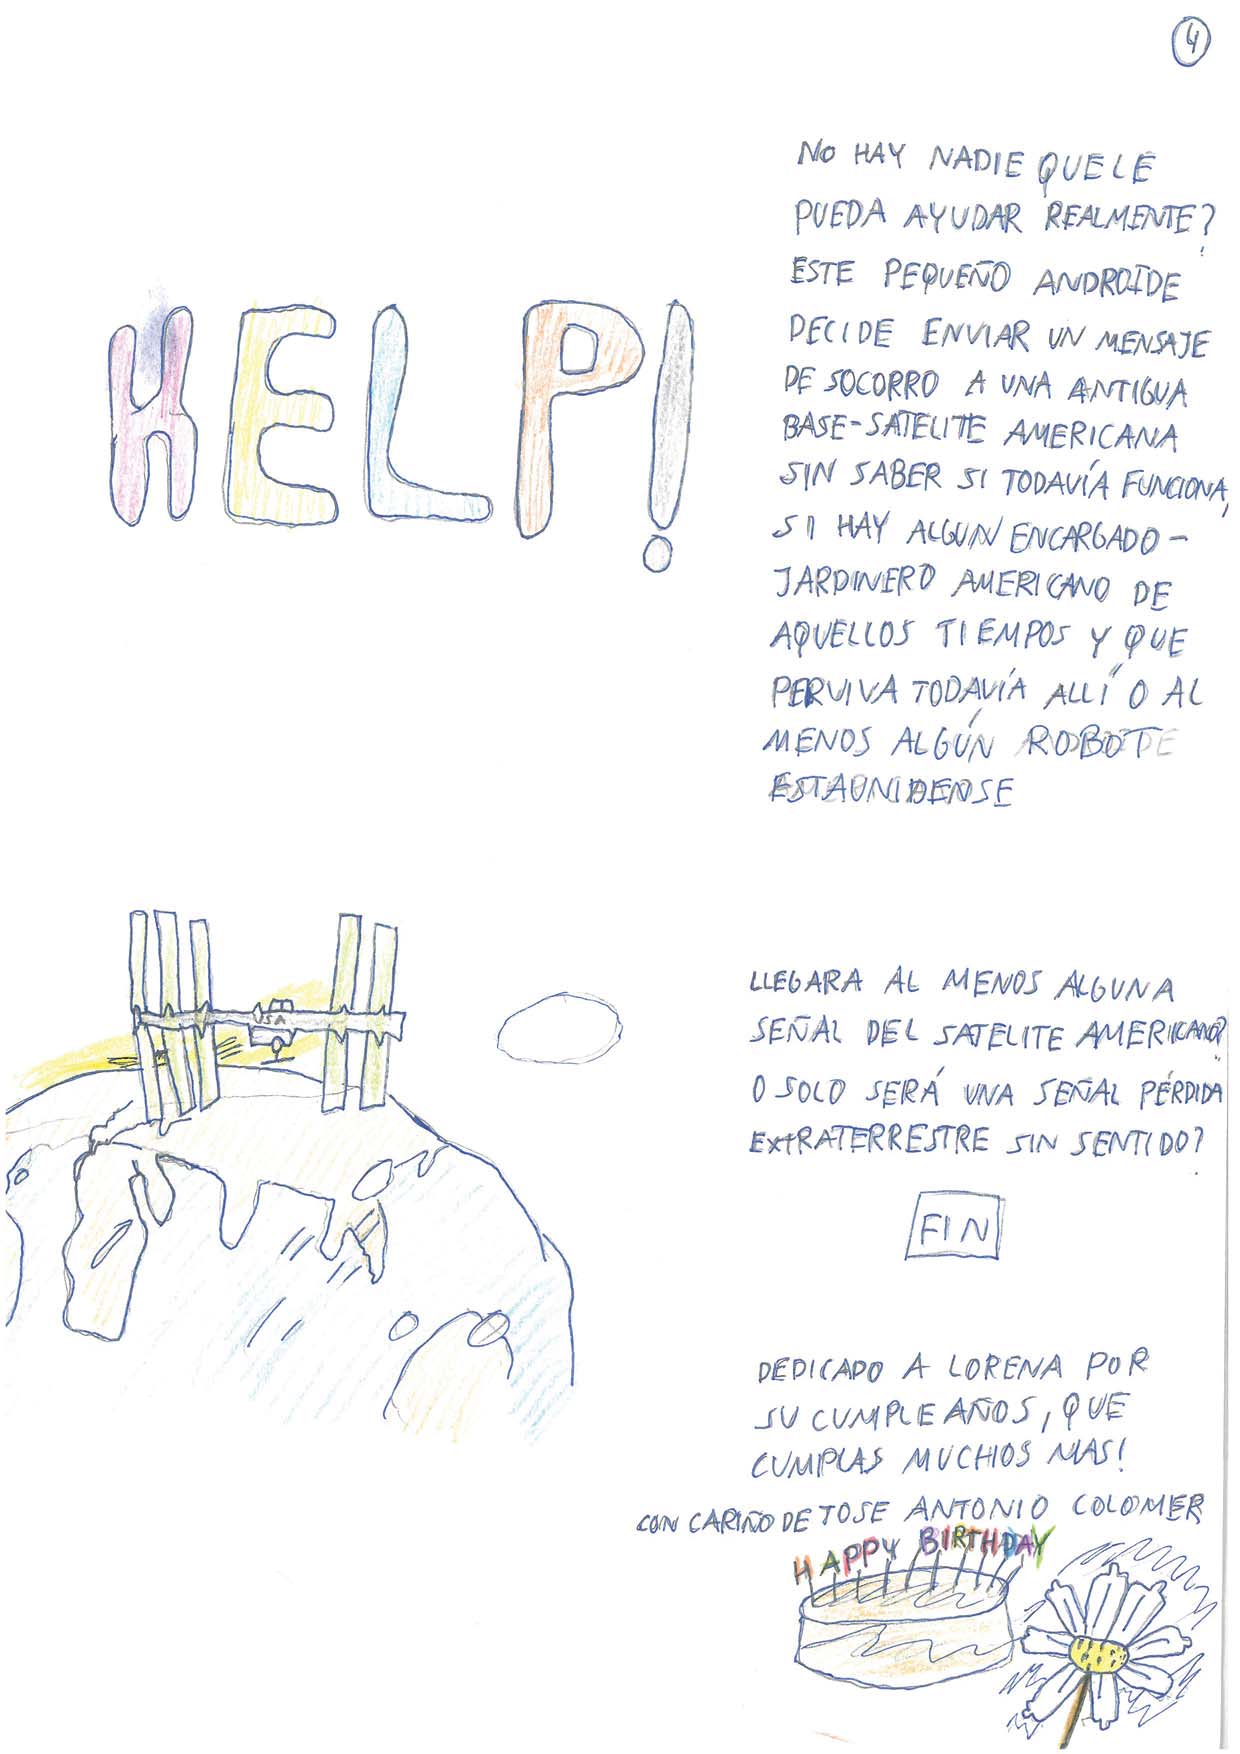 4
HELP!
NO HAY NADIE QUE LE
PUEDA AYUDAR REALMENTE?
ESTE PEQUEÑO ANDROIDE
DECIDE ENVIAR UN MENSAJE
DE SOCORRO A UNA ANTIGUA
BASE-SATELITE AMERICANA
SIN SABER SI TODAVÍA FUNCIONA,
SI HAY ALGUN ENCARGADO-
JARDINERO AMERICANO DE
AQUELLOS TIEMPOS Y QUE
PERVIVA TODAVÍA ALLÍ O AL
MENOS ALGÚN ROBOT
ESTAUNIDENSE
USA
LLEGARA AL MENOS ALGUNA
SEÑAL DEL SATELITE AMERICANO?
O SOLO SERÁ UNA SEÑAL PÉRDIDA
EXTRATERRESTRE SIN SENTIDO?
FIN
DEDICADO A LORENA POR
SU CUMPLEAÑOS, QUE
CUMPLAS MUCHOS MAS!
CON CARIÑO DE JOSE ANTONIO COLOMER
HAPPY BIRTHDAY